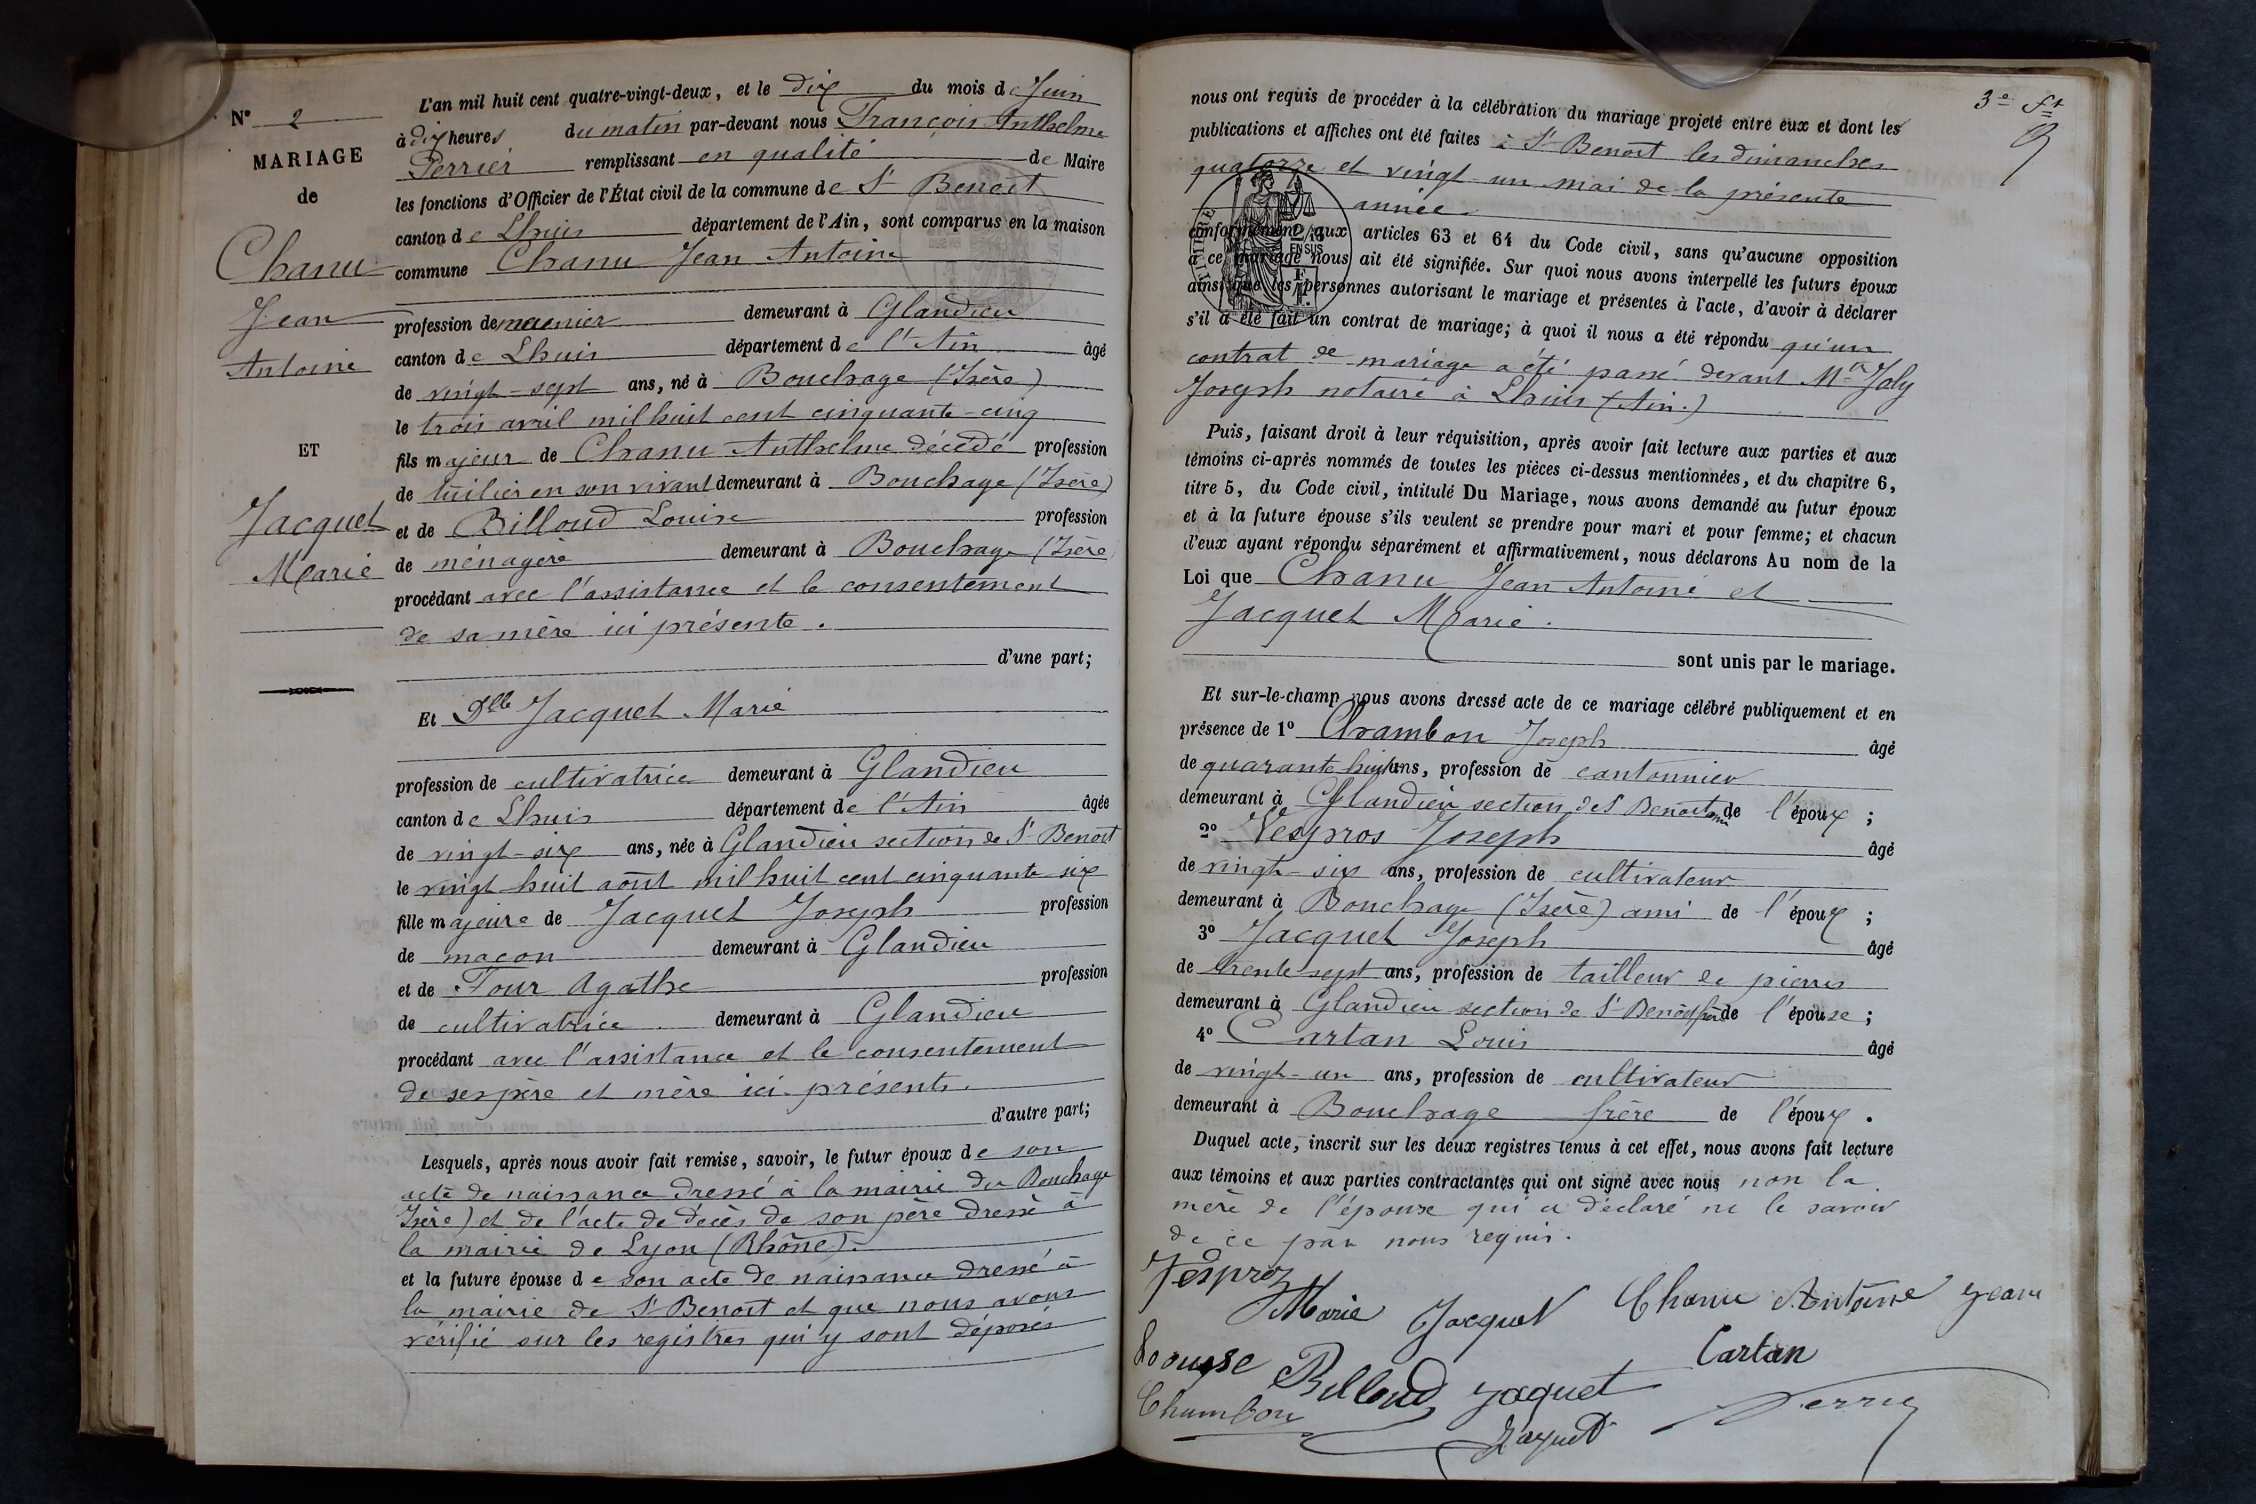 N° 2
MARIAGE
de
Chanu
Jean
Antoine
ET
Jacquet
Marie
L'an mil huit cent quatre-vingt-deux, et le dix du mois de Juin
à dix heures du matin par-devant nous François Anthelme
Perrier remplissant en qualité de Maire
les fonctions d'Officier de l'État civil de la commune de St Benoit
canton de Lhuis département de l'Ain, sont comparus en la maison
commune Chanu Jean Antoine
profession de meunier demeurant à Glandieu
canton de Lhuis département de l'Ain âgé
de vingt-sept ans, né à Bouchage (Isère)
le trois avril mil huit cent cinquante-cinq
fils majeur de Chanu Anthelme décédé profession
de tuilier en son vivant demeurant à Bouchage (Isère)
et de Billoud Louise profession
de ménagère demeurant à Bouchage (Isère
procédant avec l'assistance et le consentement
de sa mère ici présente.
d'une part;
Et Dlle Jacquet Marie
profession de cultivatrice demeurant à Glandieu
canton de Lhuis département de l'Ain âgée
de vingt-six ans, née à Glandieu section de St Benoit
le vingt huit août mil huit cent cinquante six
fille majeure de Jacquet Joseph profession
de maçon demeurant à Glandieu
et de Four Agathe profession
de cultivatrice demeurant à Glandieu
procédant avec l'assistance et le consentement
de ses père et mère ici présents.
d'autre part;
Lesquels, après nous avoir fait remise, savoir, le futur époux de son
acte de naissance dressé à la mairie du Bouchage
Isère) et de l'acte de décès de son père dressé à
la mairie de Lyon (Rhône).
et la future épouse de son acte de naissance dressé à
la mairie de St Benoit et que nous avons
vérifié sur les registres qui y sont déposés
3e ft
nous ont requis de procéder à la célébration du mariage projeté entre eux et dont les
publications et affiches ont été faites à St Benoit les dimanches
quatorze et vingt-un mai de la présente
année.
conformément aux articles 63 et 64 du Code civil, sans qu'aucune opposition
à ce mariage nous ait été signifiée. Sur quoi nous avons interpellé les futurs époux
ainsi que les personnes autorisant le mariage et présentes à l'acte, d'avoir à déclarer
s'il a été fait un contrat de mariage; à quoi il nous a été répondu qu'un
contrat de mariage a été passé devant Me Joly
Joseph notaire à Lhuis (Ain.)
Puis, faisant droit à leur réquisition, après avoir fait lecture aux parties et aux
témoins ci-après nommés de toutes les pièces ci-dessus mentionnées, et du chapitre 6,
titre 5, du Code civil, intitulé Du Mariage, nous avons demandé au futur époux
et à la future épouse s'ils veulent se prendre pour mari et pour femme; et chacun
d'eux ayant répondu séparément et affirmativement, nous déclarons Au nom de la
Loi que Chanu Jean Antoine et
Jacquet Marie.
sont unis par le mariage.
Et sur-le-champ nous avons dressé acte de ce mariage célébré publiquement et en
présence de 1° Chambon Joseph âgé
de quarante huit ans, profession de cantonnier
demeurant à Glandieu section de St Benoit ami de l'époux ;
2° Vespros Joseph âgé
de vingt-six ans, profession de cultivateur
demeurant à Bouchage (Isère) ami de l'époux ;
3° Jacquet Joseph âgé
de trente sept ans, profession de tailleur de pierres
demeurant à Glandieu section de St Benoit frère de l'épouse ;
4° Cartan Louis âgé
de vingt-un ans, profession de cultivateur
demeurant à Bouchage frère de l'époux.
Duquel acte, inscrit sur les deux registres tenus à cet effet, nous avons fait lecture
aux témoins et aux parties contractantes qui ont signé avec nous non la
mère de l'épouse qui a déclaré ne le savoir
de ce par nous requis.
Vesproz
Marie Jacquet Chanu Antoine Jean
Cartan
Louise Billoud Jacquet Perrier
Chambon
Jaquet